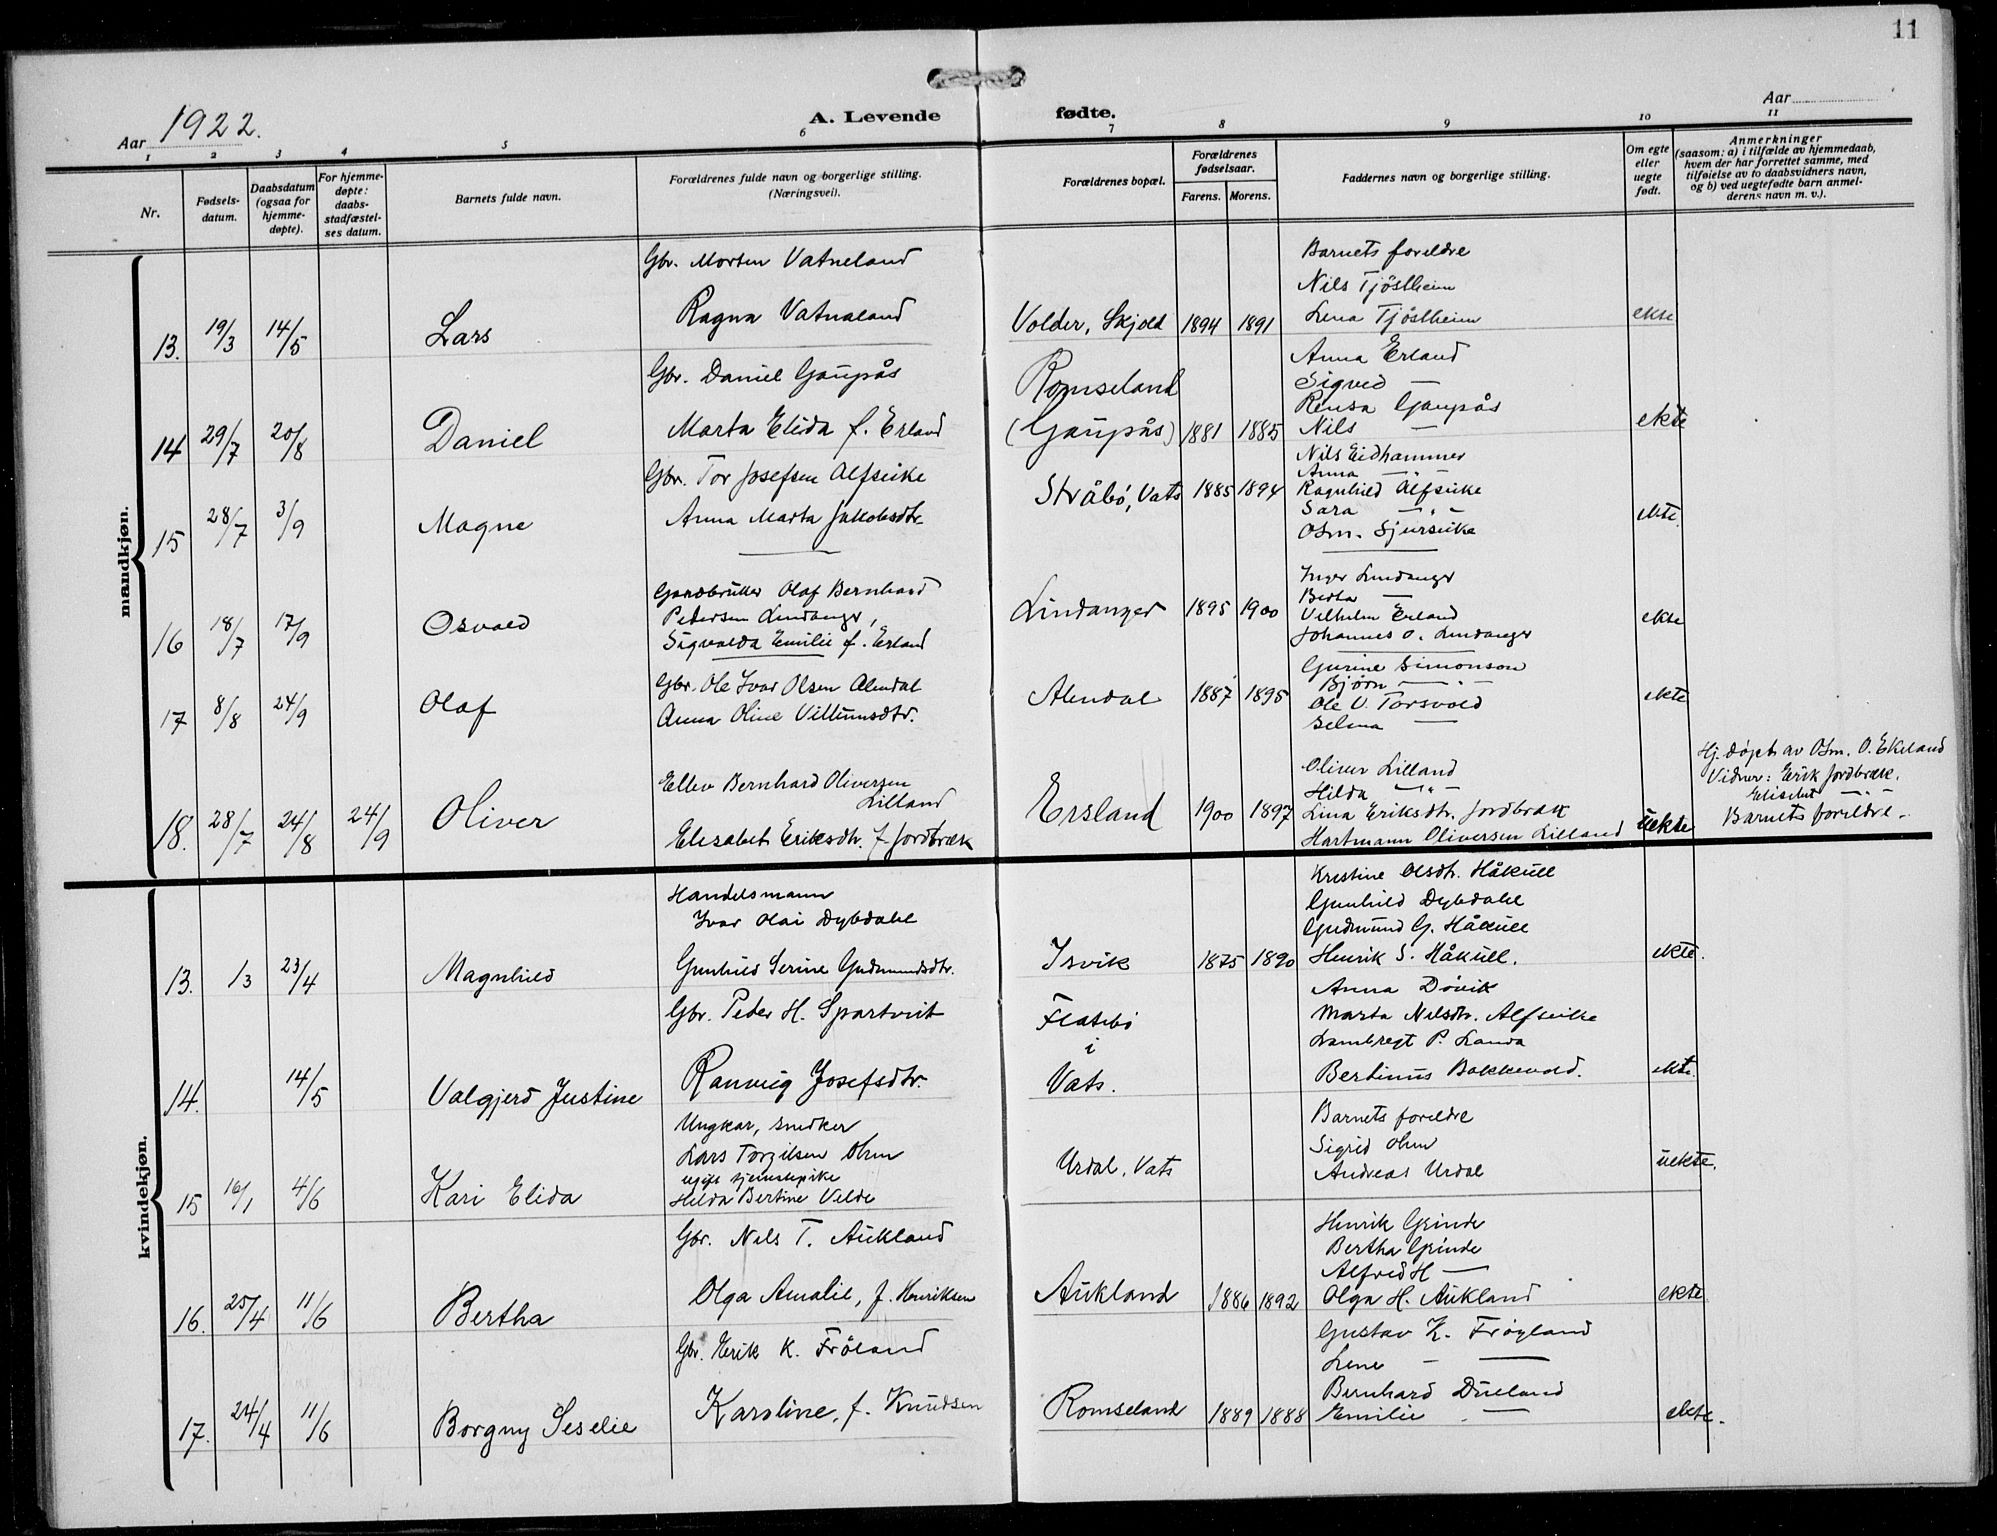 11
Aar 1922.
A. Levende fødte.
Aar
1 2 3 4 5 6 7 8 9 10 11
Nr.
Fødsels-
datum.
Daabsdatum
(ogsaa for
hjemme-
døpte).
For hjemme-
døpte:
daabs-
stadfæstel-
ses datum.
Barnets fulde navn.
Forældrenes fulde navn og borgerlige stilling.
(Næringsvei).
Forældrenes bopæl.
Forældrenes
fødselsaar.
Farens. Morens.
Faddernes navn og borgerlige stilling.
Om egte
eller
uegte
født.
Anmerkninger
(saasom: a) i tilfælde av hjemmedaab,
hvem der har forrettet samme, med
tilføielse av to daabsvidners navn,
og b) ved uegtefødte barn anmel-
derens navn m. v.).
mandkjøn.
13. 19/3 14/5 Lars
Gbr. Morten Vatneland
Ragna Vatnaland
Volder, Skjold 1894 1891
Barnets foreldre
Nils Tjöstheim
Lena Tjöstheim
ekte
14 29/7 20/8 Daniel
Gbr. Daniel Gaupås
Marta Elida f. Erland
Romseland
(Gaupås) 1881 1885
Anna Erland
Sigved —
Rensa Gaupås
Nils —
ekte
15 28/7 3/9 Magne
Gbr. Tor Josefsen Alfseike
Anna Marta Jakobsdtr.
Stråbö, Vats 1885 1894
Nils Eidhammer
Anna — " —
Ragnhild Alfseike
Sara — " —
Osm. Sjurseike
ekte.
16 18/7 17/9 Osvald
Gardbruker Olaf Bernhard
Pedersen Lindanger,
Sigvalda Emilie f. Erland
Lindanger 1895 1900
Inger Lindanger
Berta —
Vilhelm Erland
Johannes O. Lindanger
ekte
17 8/8 24/9 Olaf
Gbr. Ole Ivar Olsen Alendal
Anna Oline Villumsdtr.
Alendal 1887 1895
Gurine Simonson
Bjørn — " —
Ole V. Torsvold
Selma —
ekte
18. 28/7 24/8 24/9 Oliver
Ellev Bernhard Oliversen
Lilland
Elisabet Eriksdtr. f. Jordbræk
Ersland 1900 1897
Oliver Lilland
Hilda — " —
Lina Eriksdtr. Jordbræk
Hartmann Oliversen Lilland
uekte
Hj. døpt av Osm. O. Ekeland
Vidner: Erik Jordbræk.
Elisabet — " —
Barnets foreldre.
kvindekjøn.
13. 1/3 23/4 Magnhild
Handelsmann
Ivar Olai Dybdahl
Gunhild Serine Gudmundsdtr.
Isvik 1875 1890
Kristine Olsdtr. Håkull
Gunhild Dybdahl
Gudmund G. Håkull
Henrik S. Håkull.
ekte.
14. 14/5 Valgjerd Justine
Gbr. Peder H. Spartveit
Ranveig Josefsdtr.
Flatebö
i
Vats.
Anna Dövik
Marta Nilsdtr. Alfseike
Lambregt P. Landa
Bertinus Bakkevold.
ekte.
15 16/1 4/6 Kari Elida
Ungkar, snedker
Lars Torgilsen Ohm
ugift tjenestepike
Hilda Bertine Velde
Urdal, Vats
Barnets foreldre
Sigrid Ohm
Andreas Urdal
uekte.
16. 25/4 11/6 Bertha
Gbr. Nils T. Aukland
Olga Amalie, f. Henriksen
Aukland 1886 1892
Henrik Grinde
Bertha Grinde
Alfred H —
Olga H. Aukland
ekte.
17. 24/4 11/6 Borgny Seselie
Gbr. Henrik K. Fröland
Karoline, f. Knudsen
Romseland 1889 1888
Gustav K. Fröyland
Lene — —
Bernhard Dueland
Emilie —
ekte.